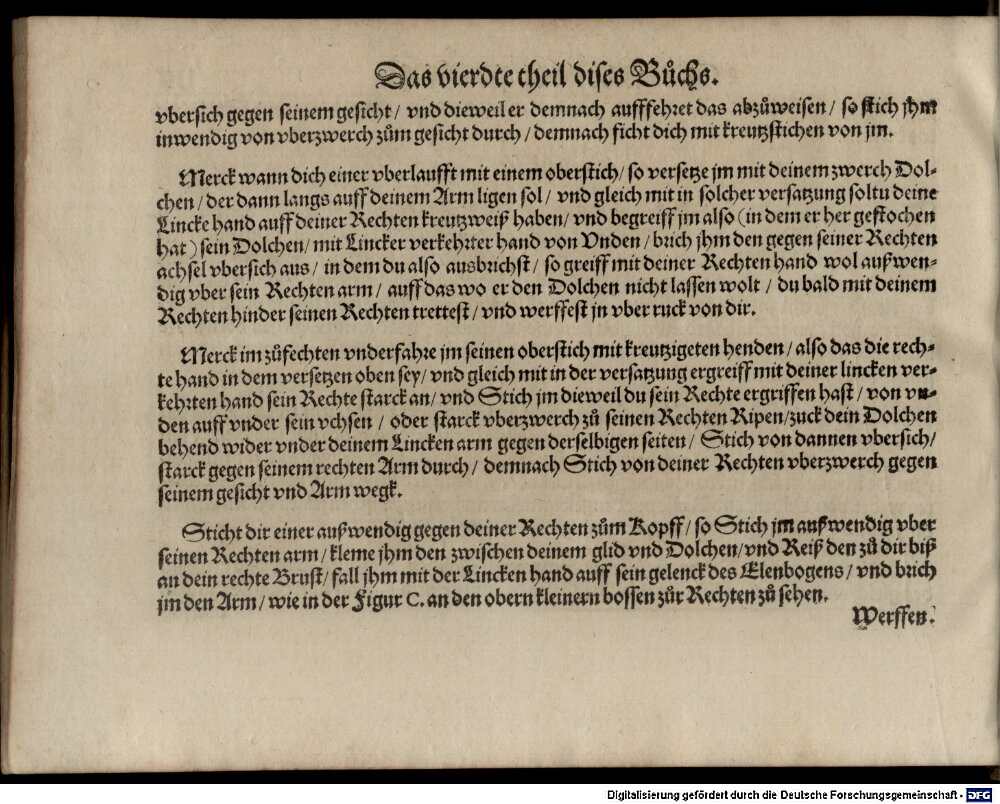 Das vierdte theil dises Bůchs.
vbersich gegen seinem gesicht / vnd dieweil er demnach aufffehret das abzůweisen / so stich jhm
inwendig von vberzwerch zům gesicht durch / demnach ficht dich mit kreutzstichen von jm.
Merck wann dich einer vberlaufft mit einem oberstich / so versetze jm mit deinem zwerch Dol-
chen / der dann langs auff deinem Arm ligen sol / vnd gleich mit in solcher versatzung soltu deine
Lincke hand auff deiner Rechten kreutzweiß haben / vnd begreiff jm also (in dem er her gestochen
hat) sein Dolchen / mit Lincker verkehrter hand von Vnden / brich jhm den gegen seiner Rechten
achsel vbersich aus / in dem du also ausbrichst / so greiff mit deiner Rechten hand wol außwen-
dig vber sein Rechten arm / auff das wo er den Dolchen nicht lassen wolt / du bald mit deinem
Rechten hinder seinen Rechten trettest / vnd werffest jn vber ruck von dir.
Merck im zůfechten vnderfahre jm seinen oberstich mit kreutzigeten henden / also das die rech-
te hand in dem versetzen oben sey / vnd gleich mit in der versatzung ergreiff mit deiner lincken ver-
kehrten hand sein Rechte starck an / vnd Stich jm dieweil du sein Rechte ergriffen hast / von vn-
den auff vnder sein vchsen / oder starck vberzwerch zů seinen Rechten Ripen / zuck dein Dolchen
behend wider vnder deinem Lincken arm gegen derselbigen seiten / Stich von dannen vbersich /
starck gegen seinem rechten Arm durch / demnach Stich von deiner Rechten vberzwerch gegen
seinem gesicht vnd Arm wegk.
Sticht dir einer außwendig gegen deiner Rechten zům Kopff / so Stich jm außwendig vber
seinen Rechten arm / kleme jhm den zwischen deinem glid vnd Dolchen / vnd Reiß den zů dir biß
an dein rechte Brust / fall jhm mit der Lincken hand auff sein gelenck des Elenbogens / vnd brich
jm den Arm / wie in der Figur C. an den obern kleinern bossen zůr Rechten zů sehen.
Werffen.
Digitalisierung gefördert durch die Deutsche Forschungsgemeinschaft - DFG